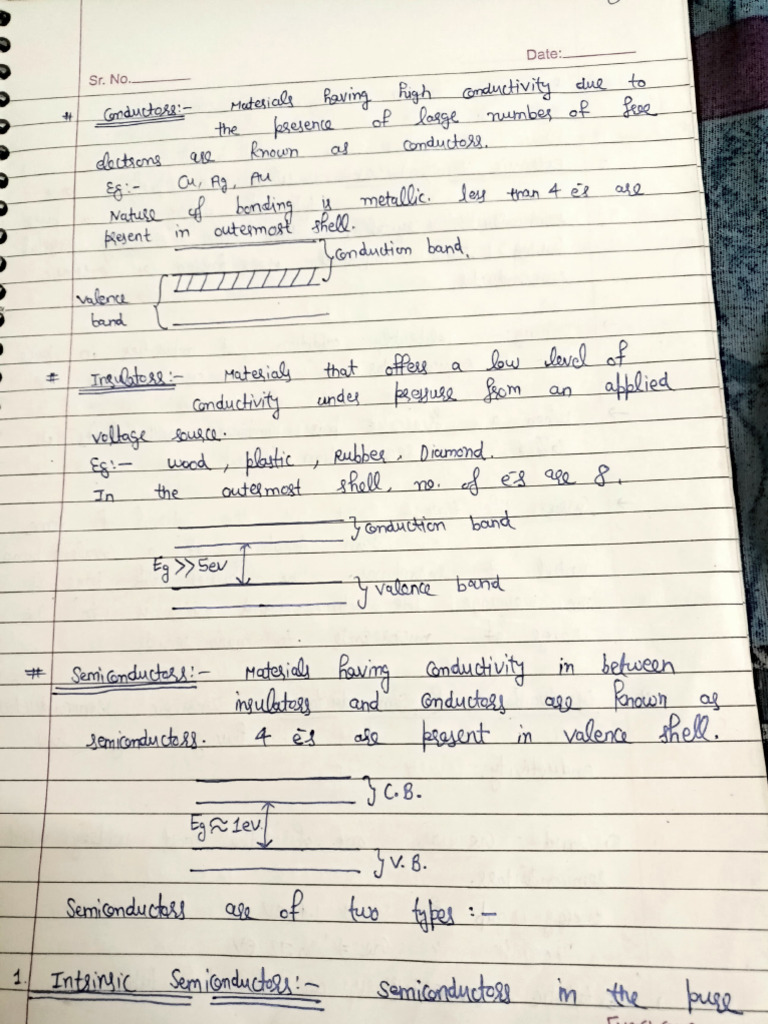 Sr. No.
Date:
# Conductors:- Materials having high conductivity due to
the presence of large number of free
electrons are known as conductors.
Eg:- Cu, Ag, Au
Nature of bonding is metallic. less than 4 e⁻s are
present in outermost shell.
conduction band.
valence
band
# Insulators:- Materials that offers a low level of
conductivity under pressure from an applied
voltage source.
Eg:- wood, plastic, Rubber, Diamond.
In the outermost shell, no. of e⁻s are 8.
conduction band
Eg >> 5ev
valance band
# Semiconductors:- Materials having conductivity in between
insulators and conductors are known as
semiconductors. 4 e⁻s are present in valence shell.
C.B.
Eg ≈ 1ev.
V.B.
Semiconductors are of two types :-
1. Intrinsic Semiconductors:- semiconductors in the pure